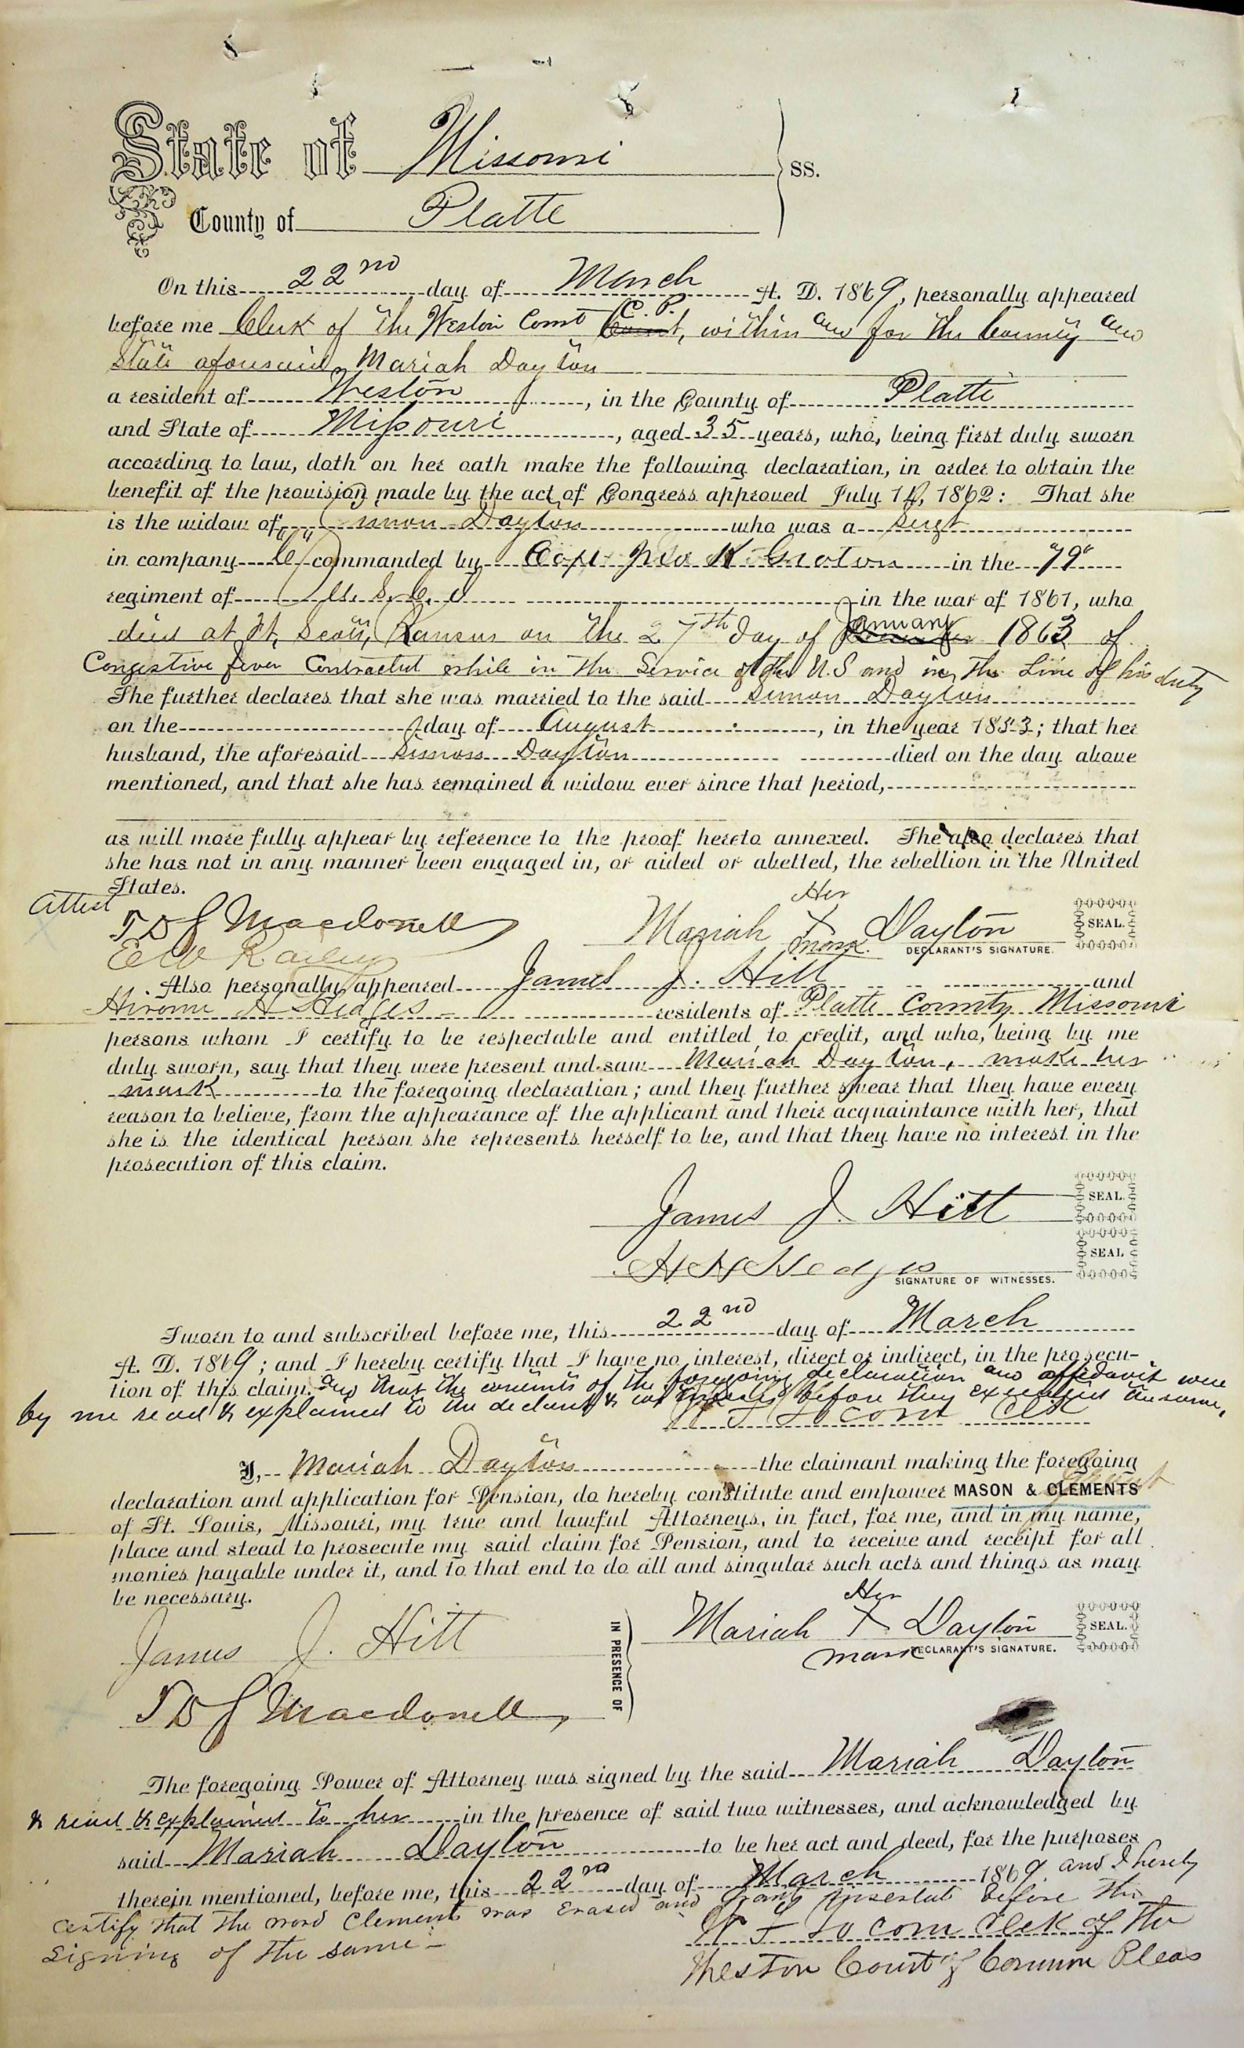 State of Missouri } SS.
County of Platte
On this 22nd day of March A. D. 1869, personally appeared
before me Clerk of the Weston Court C. P. Court, within and for the County and
State aforesaid, Mariah Dayton
a resident of Weston, in the County of Platte
and State of Missouri, aged 35 years, who, being first duly sworn
according to law, doth on her oath make the following declaration, in order to obtain the
benefit of the provision made by the act of Congress approved July 14, 1862: That she
is the widow of Simon Dayton who was a Sergt
in company "C" commanded by Capt in the "79"
regiment of U. S. C. I in the war of 1861, who
died at Ft. Scott, Kansas on the 27th day of January 1863 of
Congestive fever Contracted while in the Service of the U.S and in the Line of his duty
She further declares that she was married to the said Simon Dayton
on the day of August, in the year 1853; that her
husband, the aforesaid Simon Dayton died on the day above
mentioned, and that she has remained a widow ever since that period,
as will more fully appear by reference to the proof hereto annexed. She also declares that
she has not in any manner been engaged in, or aided or abetted, the rebellion in the United
States.
Attest
T D S Macdonell
Mariah Her X mark Dayton SEAL.
DECLARANT'S SIGNATURE.
E W Railey
Also personally appeared James J. Hitt and
Hirome H Hedges residents of Platte County Missouri
persons whom I certify to be respectable and entitled to credit, and who, being by me
duly sworn, say that they were present and saw Mariah Dayton, make her
mark to the foregoing declaration; and they further swear that they have every
reason to believe, from the appearance of the applicant and their acquaintance with her, that
she is the identical person she represents herself to be, and that they have no interest in the
prosecution of this claim.
James J. Hitt SEAL.
H H Hedges SEAL
SIGNATURE OF WITNESSES.
Sworn to and subscribed before me, this 22nd day of March
A. D. 1869; and I hereby certify that I have no interest, direct or indirect, in the prosecu-
tion of this claim. And that the contents of the foregoing declaration and affidavit were
by me read & explained to the declarant & witnesses before they executed the same,
Clk
I, Mariah Dayton the claimant making the foregoing
declaration and application for Pension, do hereby constitute and empower MASON & CLEMENTS
of St. Louis, Missouri, my true and lawful Attorneys, in fact, for me, and in my name,
place and stead to prosecute my said claim for Pension, and to receive and receipt for all
monies payable under it, and to that end to do all and singular such acts and things as may
be necessary.
James J. Hitt
T D S Macdonell,
IN PRESENCE OF
Mariah Her X mark Dayton SEAL.
DECLARANT'S SIGNATURE.
The foregoing Power of Attorney was signed by the said Mariah Dayton
& read & explained to her in the presence of said two witnesses, and acknowledged by
said Mariah Dayton to be her act and deed, for the purposes
therein mentioned, before me, this 22nd day of March 1869 and I hereby
certify that the word Clements was Erased and inserted before the
signing of the same
Clerk of the
Weston Court of Common Pleas